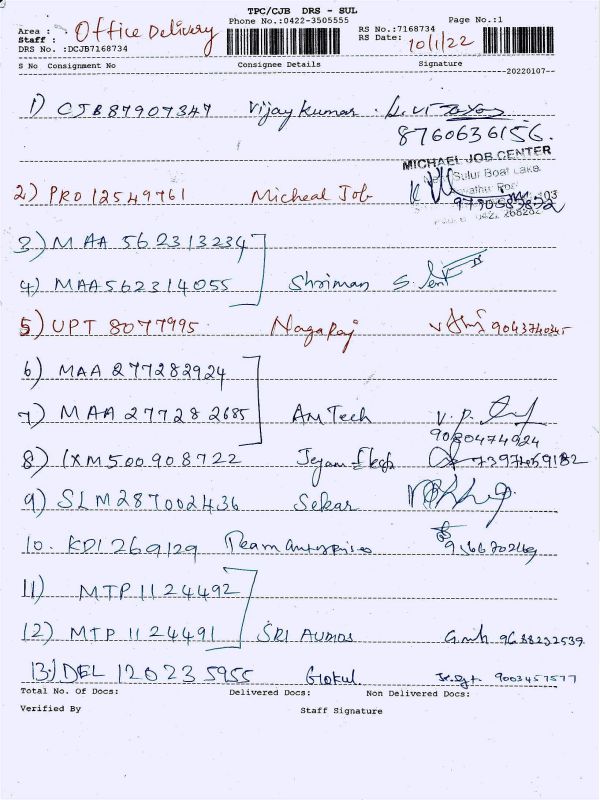 TPC/CJB DRS - SUL
Area : Office Delivery Phone No.:0422-3505555 Page No.:1
Staff : RS No.:7168734
DRS No. :DCJB7168734 RS Date: 10/1/22
S No Consignment No Consignee Details Signature
20220107
1) CJB87907347 Vijay Kumar
8760636156.
MICHAEL JOB CENTER
Sulur Boat Lake
2) PRO12549761 Micheal Job
3) MAA 562313234
4) MAA562314055 Shriman
5) UPT 8077995 Nagaraj 9043740345
6) MAA 277282924
7) MAA 277282685 AM Tech
9080474924
8) IXM500908722 Jeyam 7397459182
9) SLM287002436 Sekar
10. KDI269129
11) MTP1124492
12) MTP 1124491 SRI 9688232539
13) DEL 120235955 Gokul 9003457577
Total No. Of Docs: Delivered Docs: Non Delivered Docs:
Verified By Staff Signature